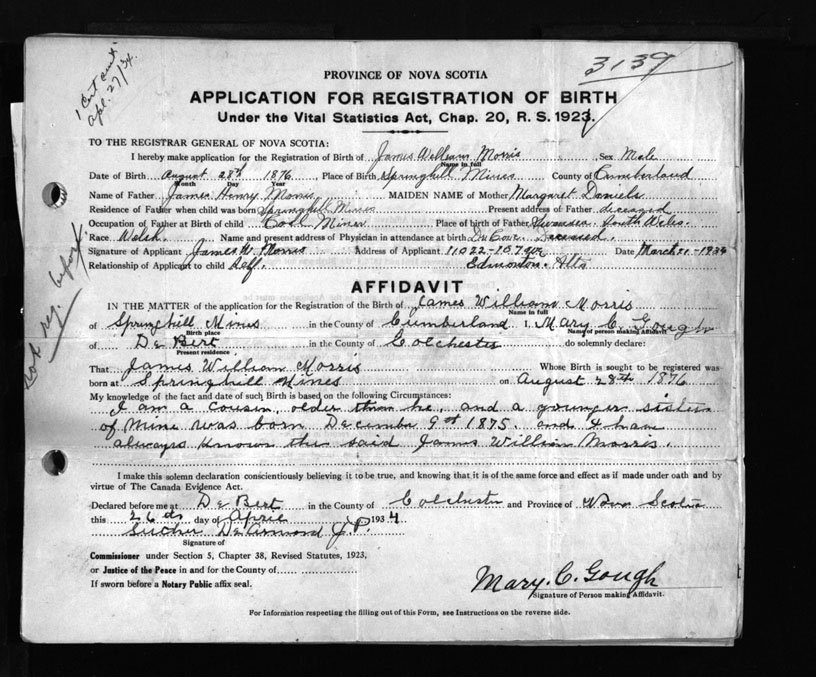 1 Cert sent
Apl. 27/34.
3139
PROVINCE OF NOVA SCOTIA
APPLICATION FOR REGISTRATION OF BIRTH
Under the Vital Statistics Act, Chap. 20, R. S. 1923.
TO THE REGISTRAR GENERAL OF NOVA SCOTIA:
I hereby make application for the Registration of Birth of James William Morris Sex Male
Name in full
Date of Birth August 28th 1876 Place of Birth Springhill Mines County of Cumberland
Month Day Year
Name of Father James Henry Morris MAIDEN NAME of Mother Margaret Daniels
Residence of Father when child was born Springhill Mines Present address of Father diseased
Occupation of Father at Birth of child Coal Miner Place of birth of Father Swansea, South Wales.
Race Welsh. Name and present address of Physician in attendance at birth Dr Cove. Deceased.
Signature of Applicant James W. Morris Address of Applicant 11022-107 ave Date March 21-1934
Relationship of Applicant to child Self. Edmonton. Alta
Not reg. before
AFFIDAVIT
IN THE MATTER of the application for the Registration of the Birth of James William Morris
Name in full
of Springhill Mines in the County of Cumberland I, Mary C. Gough
Birth place Name of person making Affidavit
of De Bert in the County of Colchester do solemnly declare:
Present residence
That James William Morris Whose Birth is sought to be registered was
born at Springhill Mines on August 28th 1876
My knowledge of the fact and date of such Birth is based on the following Circumstances:
I am a Cousin, older than he, and a younger sister
of Mine was born December 9th 1875. and I have
always known the said James William Morris.
I make this solemn declaration conscientiously believing it to be true, and knowing that it is of the same force and effect as if made under oath and by
virtue of The Canada Evidence Act.
Declared before me at De Bert in the County of Colchester and Province of Nova Scotia
this 26th day of April 1934
J.P.
Signature of
Commissioner under Section 5, Chapter 38, Revised Statutes, 1923,
or Justice of the Peace in and for the County of
If sworn before a Notary Public affix seal.
Mary. C. Gough
Signature of Person making Affidavit.
For Information respecting the filling out of this Form, see Instructions on the reverse side.